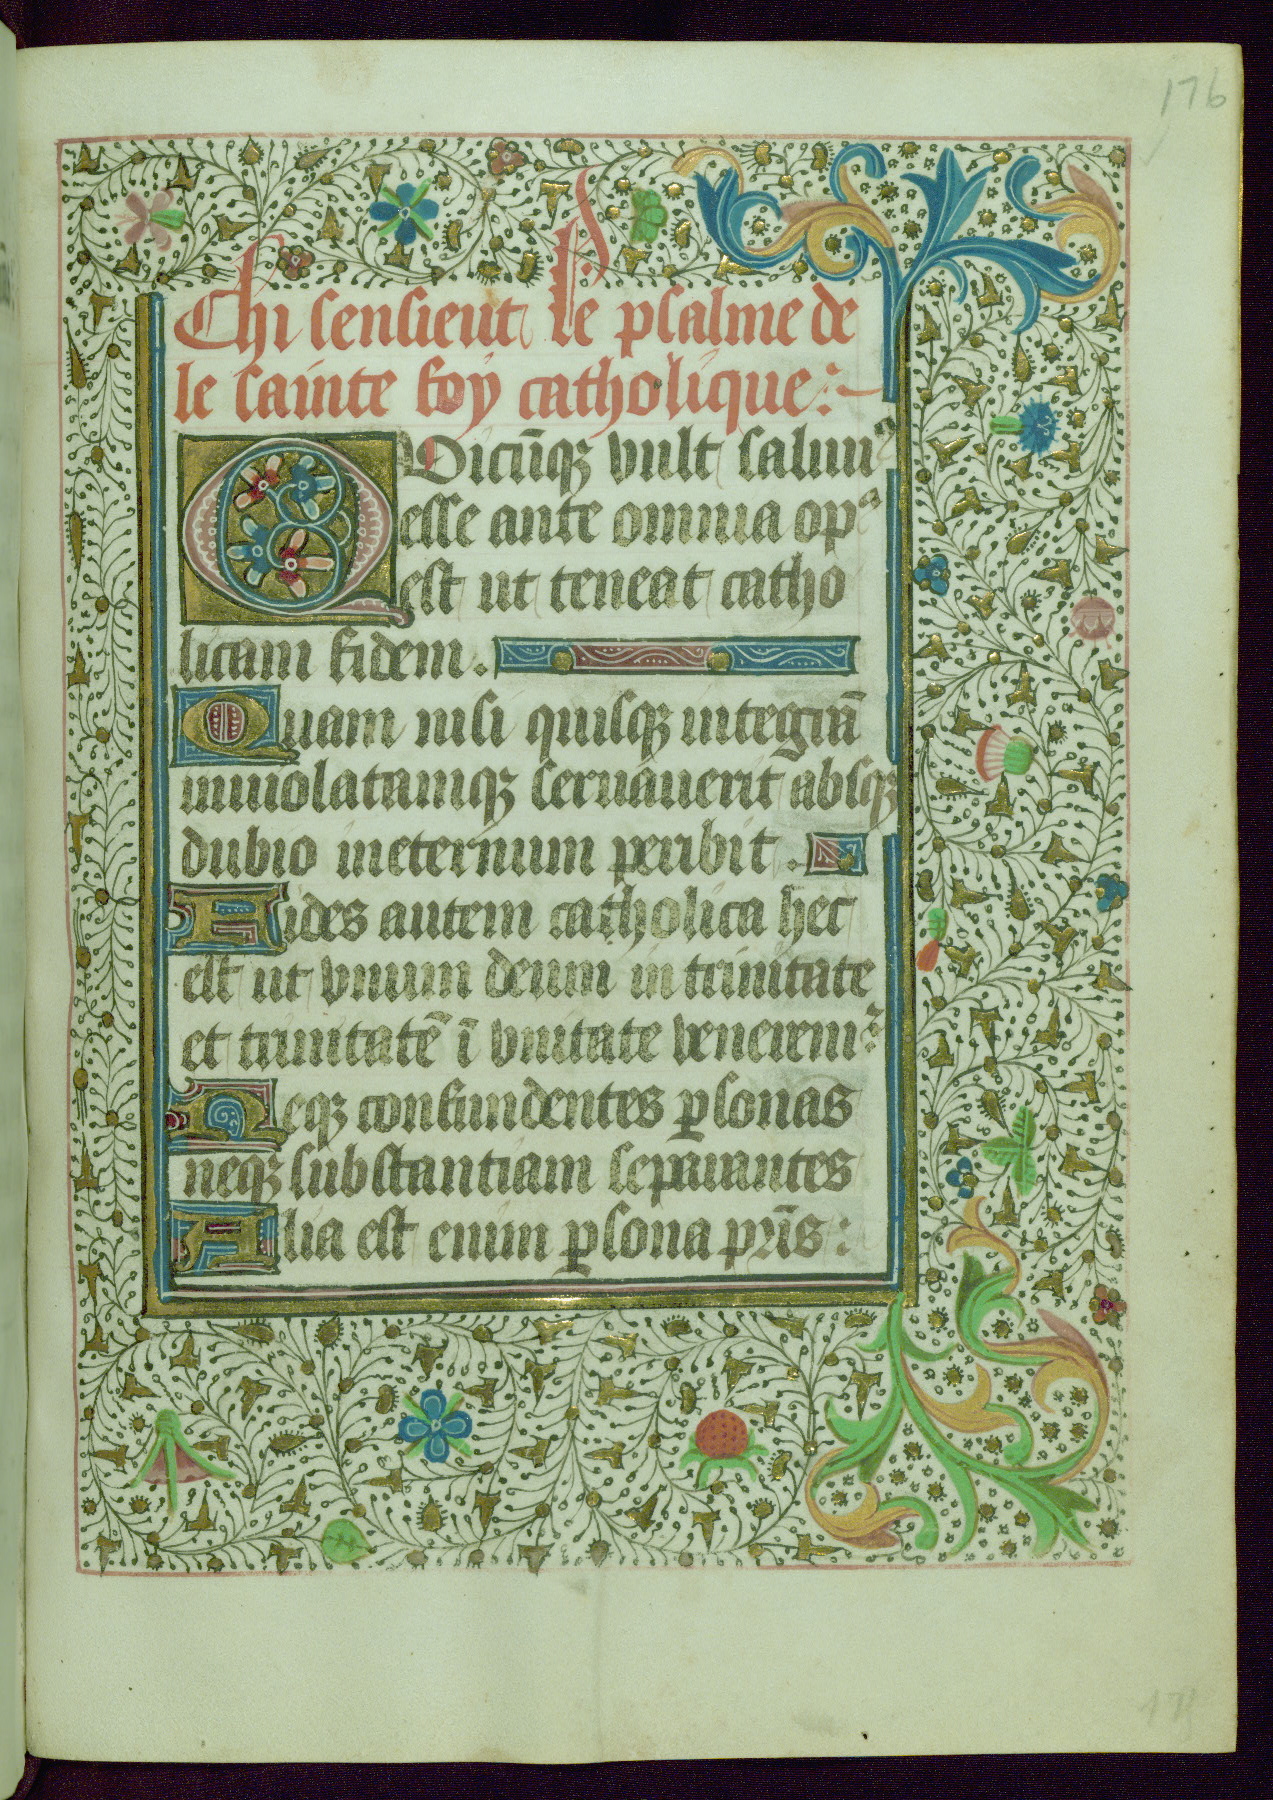 176
Chi sensieut le psalme de
le sainte foy catholique:
QUicūqꝫ vult saluus
esse ante omnia opᵃ
est ut teneat catho
licam fidem.
Quam nisi quisqꝫ integrā
inuiolatamqꝫ seruauerit absqꝫ
dubio ineternum peribit.
Fides autem catholica hec
est ut vnum deum in trinitate
et trinitatē ī vnitate venerem᷑
Neqꝫ confundentes ꝑsonas
neqꝫ substantiam separantes
Alia est enim ꝑsona pr̄is: